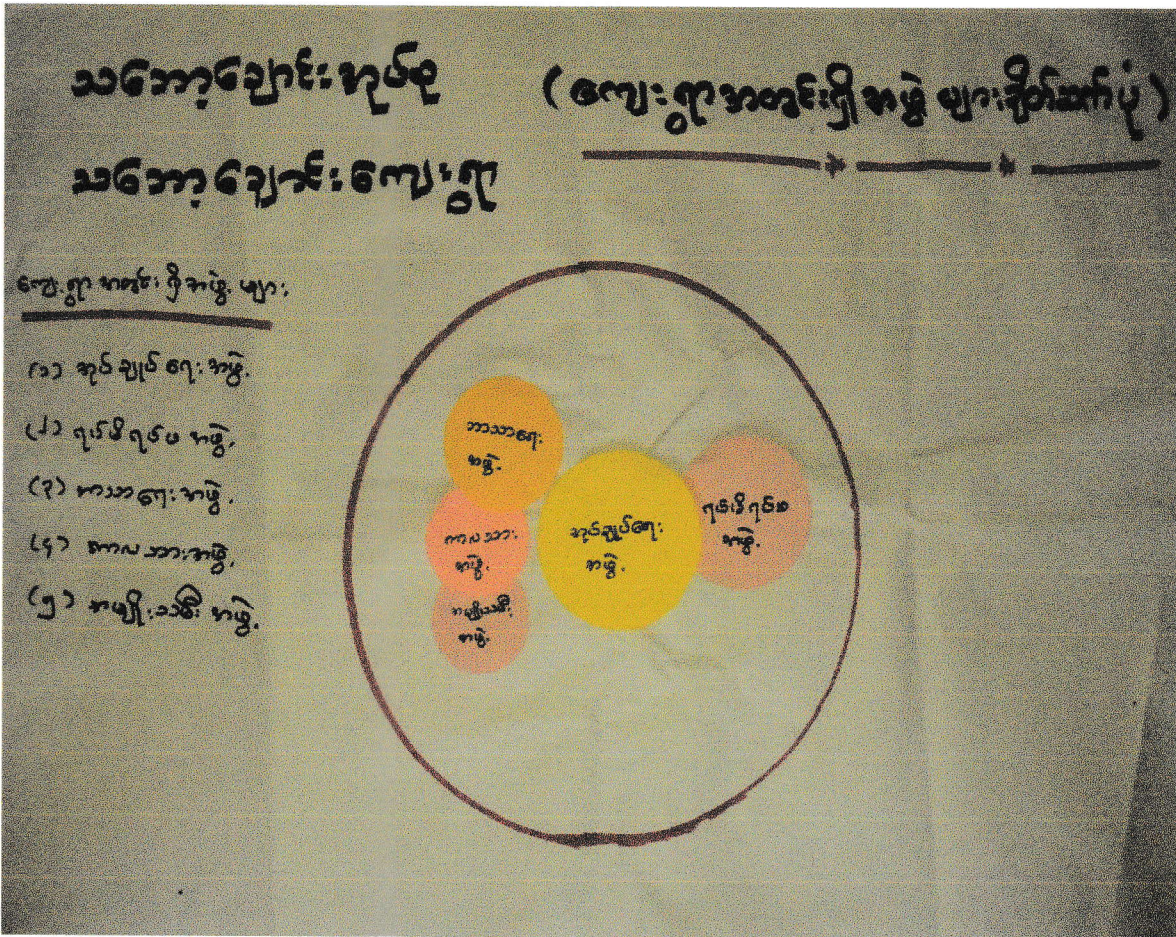 သဘော့ချောင်းအုပ်စု
(ကျေးရွာအတွင်းရှိအဖွဲ့များချိတ်ဆက်ပုံ)
သဘော့ချောင်းကျေးရွာ
ကျေးရွာအတွင်းရှိအဖွဲ့များ
(၁) အုပ်ချုပ်ရေးအဖွဲ့
(၂) ရပ်မိရပ်ဖအဖွဲ့
(၃) ဘာသာရေးအဖွဲ့
(၄) ကာလသားအဖွဲ့
(၅) အမျိုးသမီးအဖွဲ့
ဘာသာရေး
အဖွဲ့
ကာလသား
အဖွဲ့
အမျိုးသမီး
အဖွဲ့
အုပ်ချုပ်ရေး
အဖွဲ့
ရပ်မိရပ်ဖ
အဖွဲ့